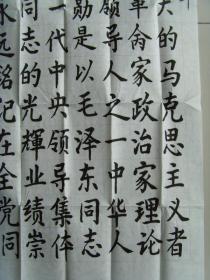 大的马克思主义者
革命家政治家理论
领导人之一中华人
勋是以毛泽东同志
一代中央领导集体
同志的光輝业绩崇
永远铭记在全党同